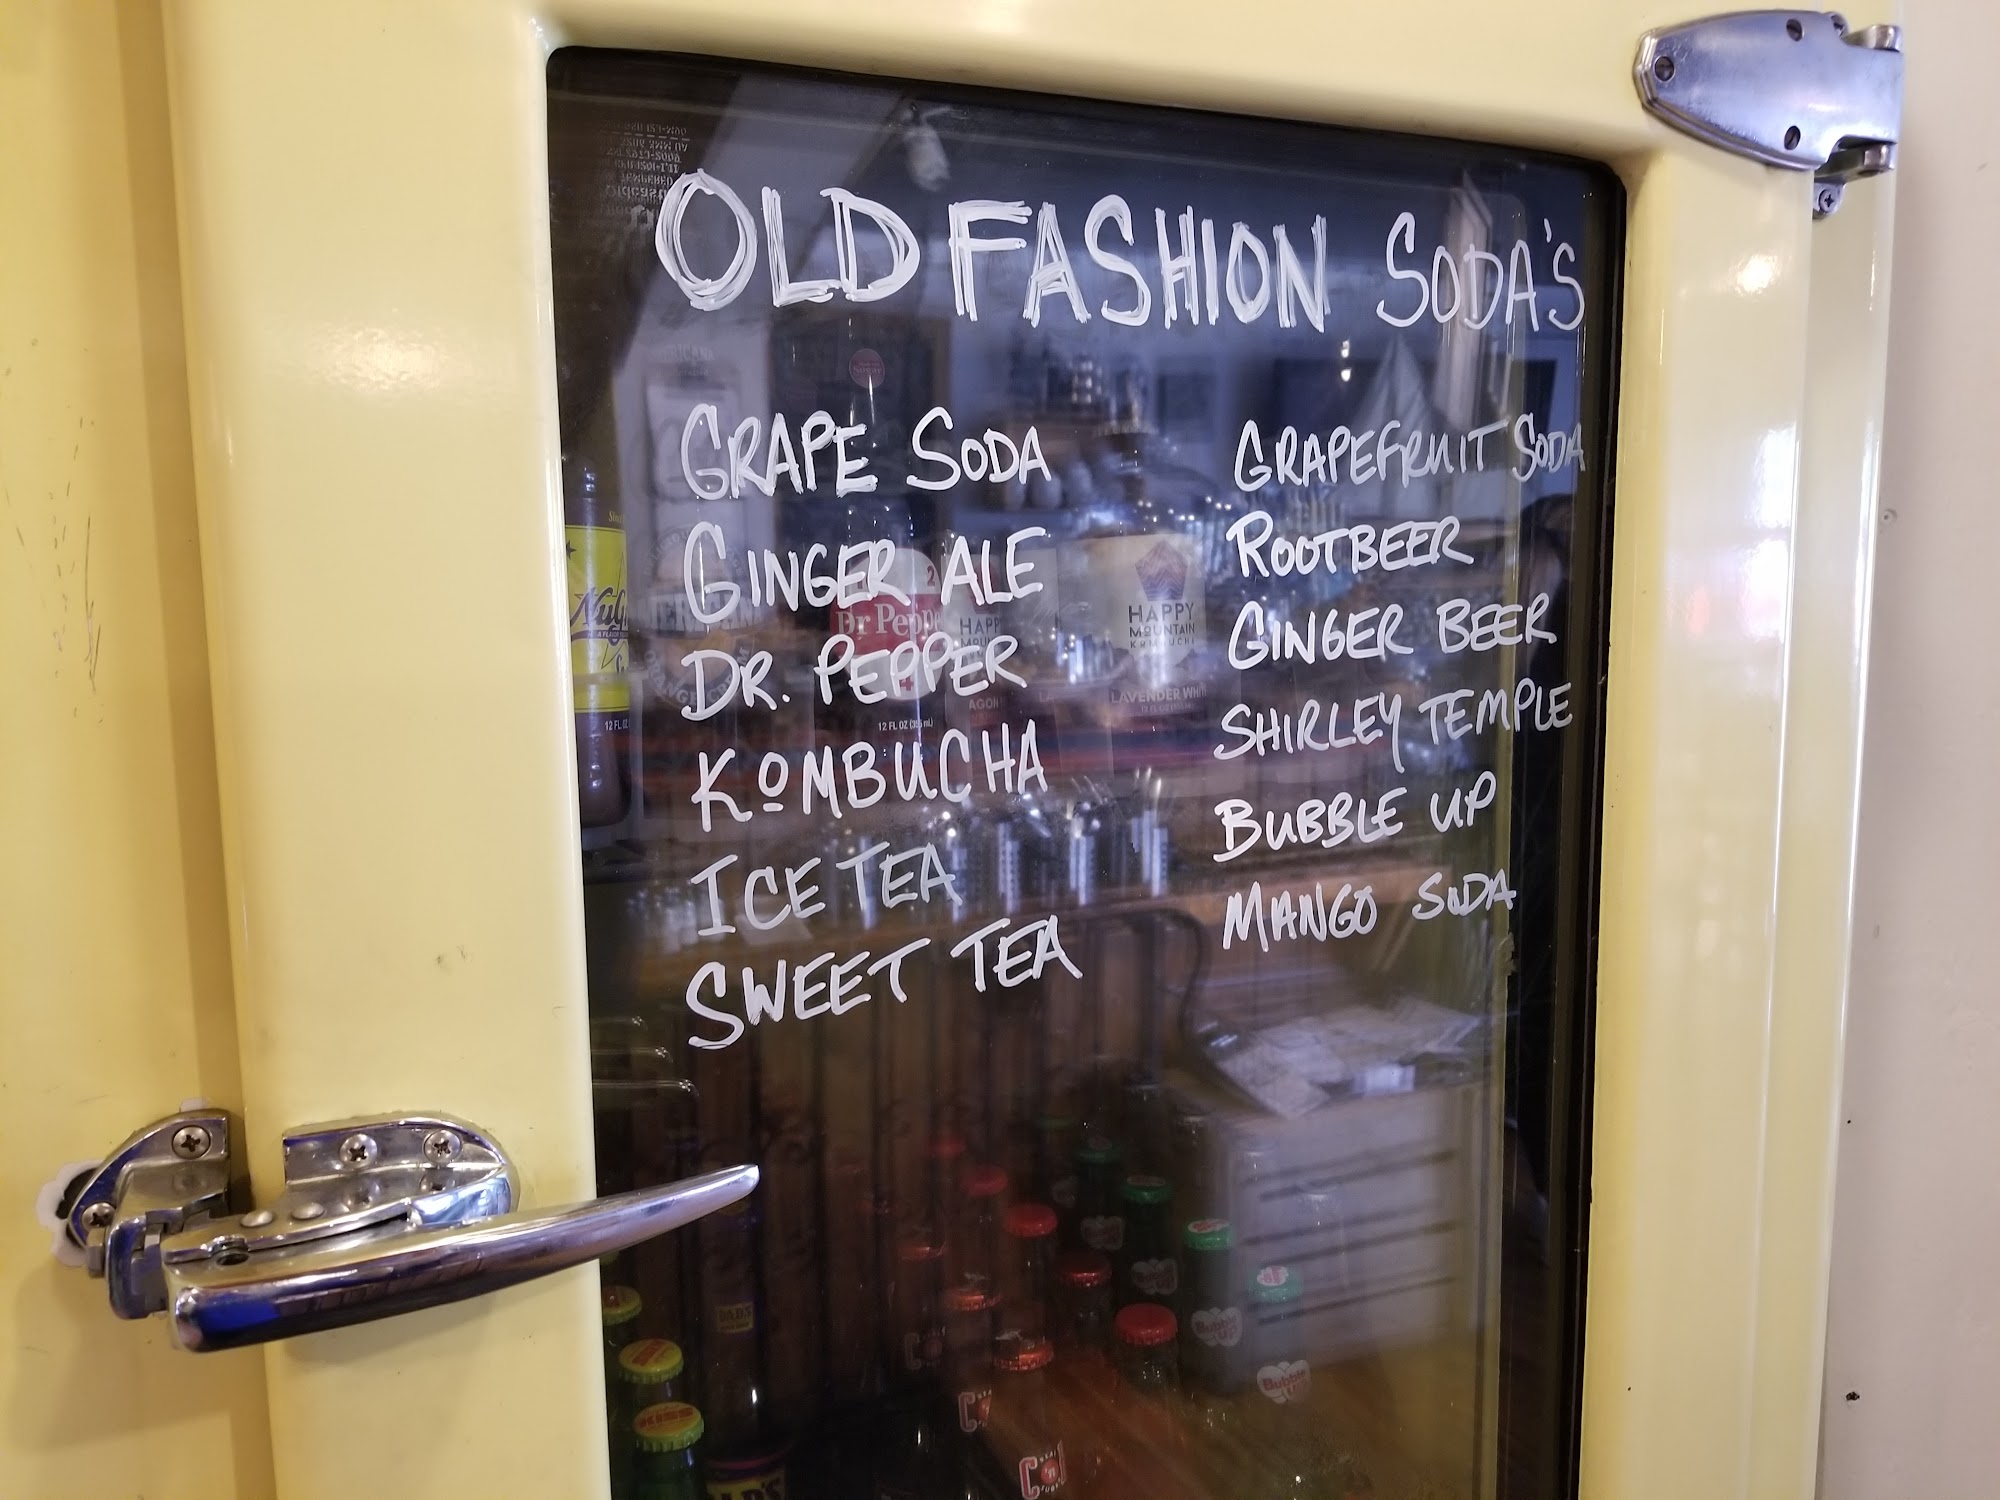 OLD FASHION SODA'S
GRAPE SODA
GINGER ALE
DR. PEPPER
KOMBUCHA
ICE TEA
SWEET TEA
GRAPEFRUIT SODA
ROOTBEER
GINGER BEER
SHIRLEY TEMPLE
BUBBLE UP
MANGO SODA
Dr Pepp
12 FL OZ
HAPPY
MOUNTAIN
KOMBUCHA
LAVENDER
12 FL OZ
ORANGE
KISS
DAD'S
Bubble
UP
Bubble
UP